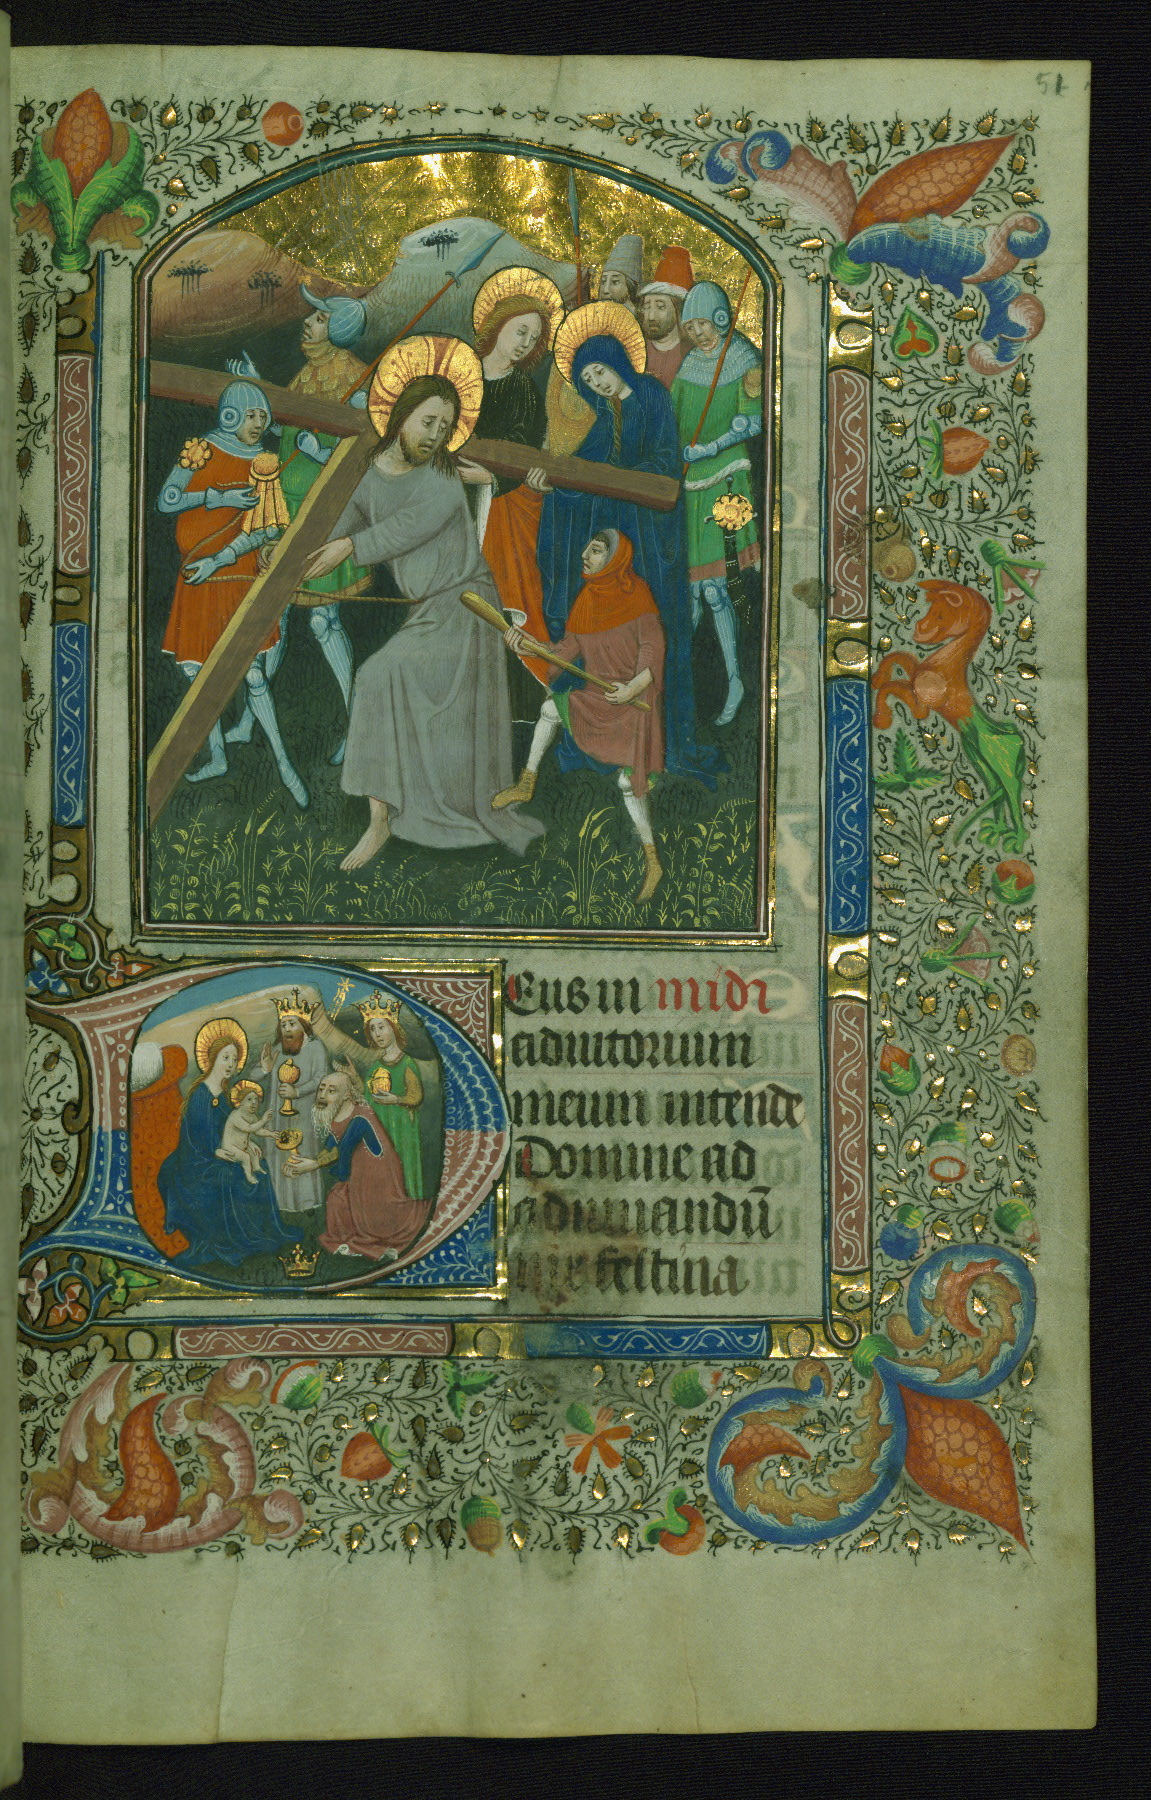 51
Deus in midi
adiutorium
meum intende
Domine ad
adiuuandū
me festina